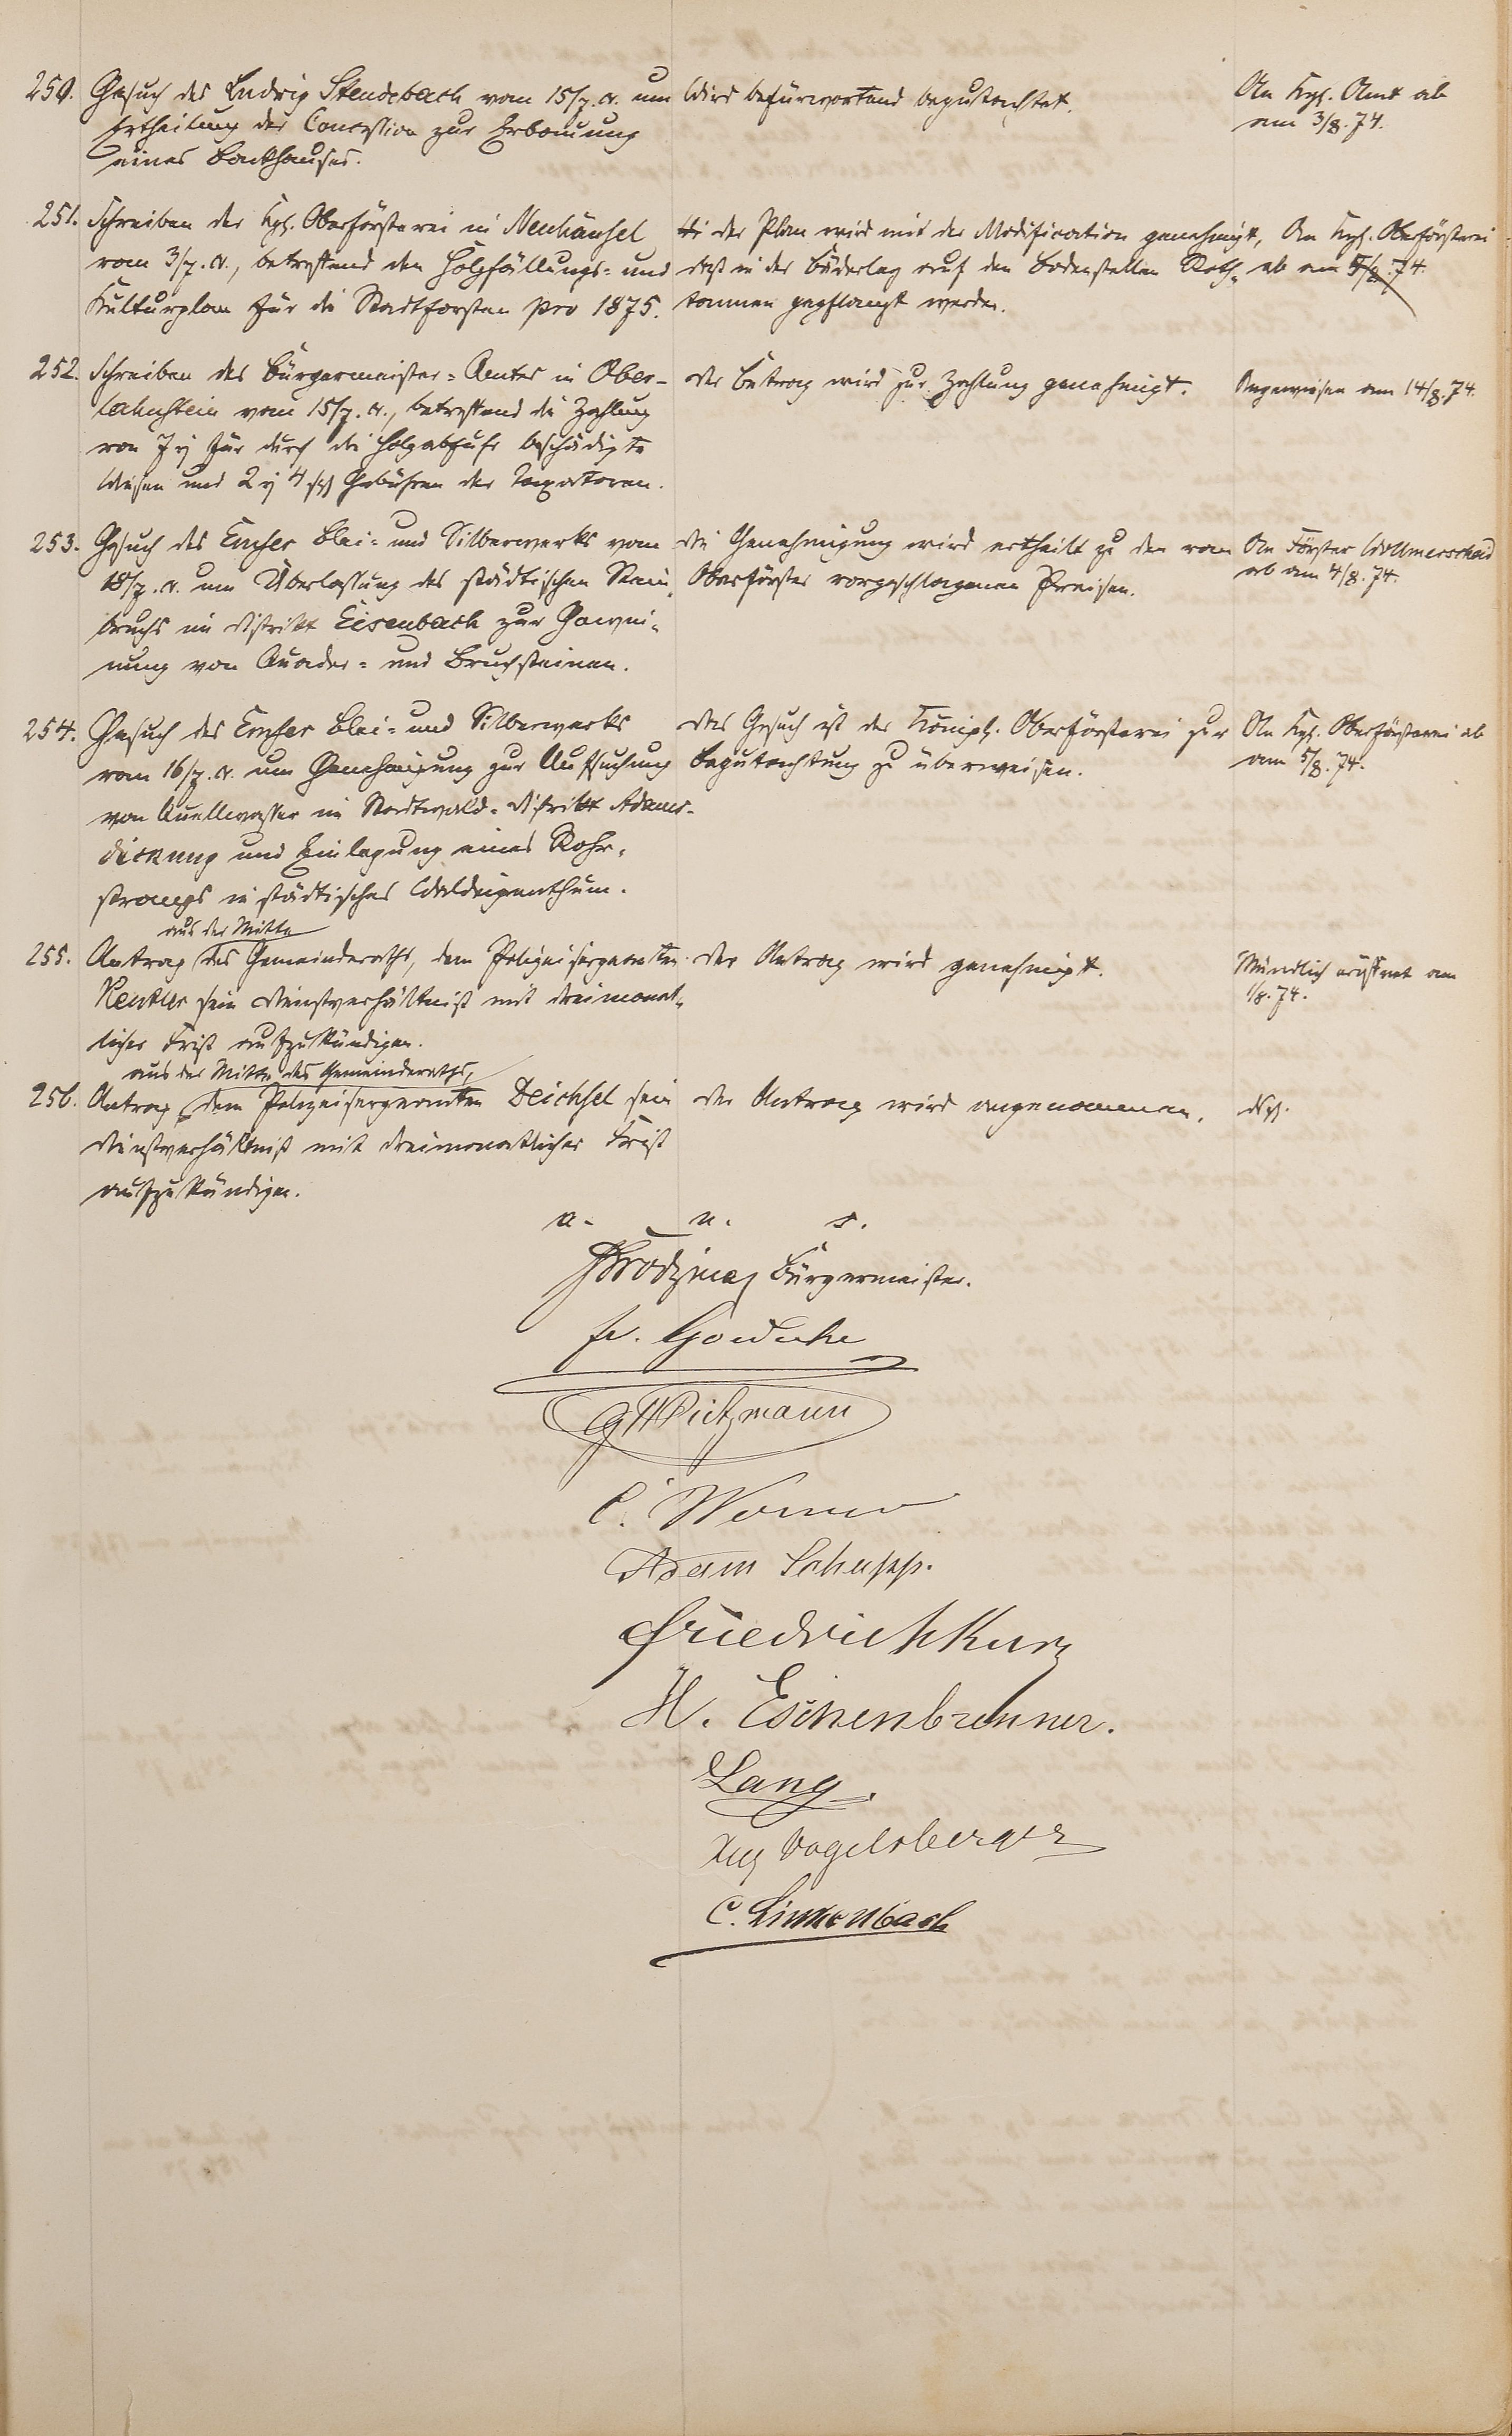 250. Gesuch des Ludwig Stendebach vom 15/7. cr. um
Ertheilung der Concession zur Erbauung
eines Backhauses.
Wird befürwortend begutachtet.
An Kgl. Amt ab
am 3/8. 74.
251. Schreiben der Kgl. Oberförsterei in Neuhäusel
vom 3/7. cr., betreffend den Holzfällungs- und
Kulturplan für die Stadtforsten pro 1875.
der Plan wird mit der Modification genehmigt,
daß in der Bäderley auf den Bodenstellen Roth-
tannen gepflanzt werden.
An Kgl. Oberförsterei
ab am 5/8. 74.
252. Schreiben des Bürgermeister-Amtes in Ober-
lahnstein vom 15/7. cr., betreffend die Zahlung
von 7 für durch die Holzabfuhr beschädigte
Wiesen und 2 4 Gebühren der Taxatoren.
Der Betrag wird zur Zahlung genehmigt.
Angewiesen am 14/8. 74.
253. Gesuch des Emser Blei- und Silberwerks vom
18/7. cr. um Überlassung des städtischen Stein-
bruchs im Distrikt Eisenbach zur Gewin-
nung von Quader- und Bruchsteinen.
Die Genehmigung wird ertheilt zu den vom
Oberförster vorgeschlagenen Preisen.
An Förster Wollmerscheid
ab am 4/8. 74.
254. Gesuch des Emser Blei- und Silberwerks
vom 16/7. cr. um Genehmigung zur Aufsuchung
von Quellwasser im Stadtwald-Distrikt Adams-
dickung und Einlegung eines Rohr-
strangs in städtisches Waldeigenthum.
Das Gesuch ist der Königl. Oberförsterei zur
Begutachtung zu überweisen.
An Kgl. Oberförsterei ab
am 5/8. 74.
aus der Mitte
255. Antrag des Gemeinderaths, dem Polizeisergeanten
sein Dienstverhältniß mit dreimonat-
licher Frist aufzukündigen.
Der Antrag wird genehmigt.
Mündlich eröffnet am
1/8. 74.
aus der Mitte des Gemeinderaths,
256. Antrag, dem Polizeisergeanten Deichsel sein
Dienstverhältniß mit dreimonatlicher Frist
aufzukündigen.
Der Antrag wird angenommen.
Dsgl.
a. u. s.
Bürgermeister.
Fr. Goedecke
Adam Schupp.
Friedrich Kurz
H. Eschenbrenner.
Lang.
Aug Vogelsberger
C. Linkenbach